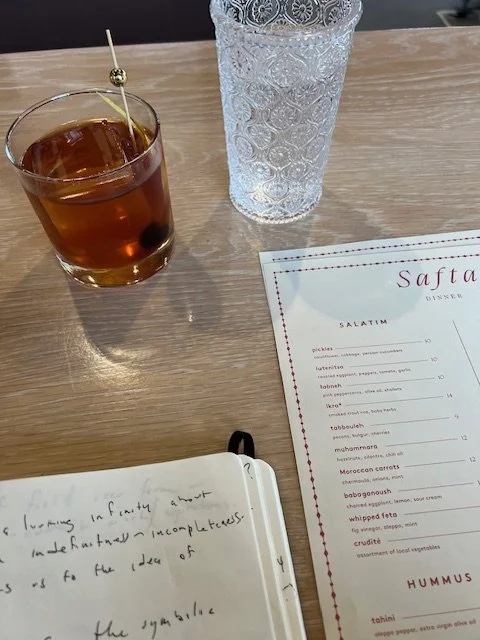 Safta
DINNER
SALATIM
pickles 10
cauliflower, cabbage, persian cucumbers
lutenitsa 10
roasted eggplant, peppers, tomato, garlic
labneh 10
pink peppercorns, olive oil, shallots
ikra* 14
smoked trout roe, baby herbs
tabbouleh 9
pecans, bulgur, cherries
muhammara 12
hazelnuts, cilantro, chili oil
Moroccan carrots 12
chermoula, onions, mint
babaganoush
charred eggplant, lemon, sour cream
whipped feta
fig vinegar, aleppo, mint
crudité
assortment of local vegetables
HUMMUS
tahini
aleppo pepper, extra virgin olive oil
infinity about
indefinitness incompleteness.
as to the idea of
the symbolic